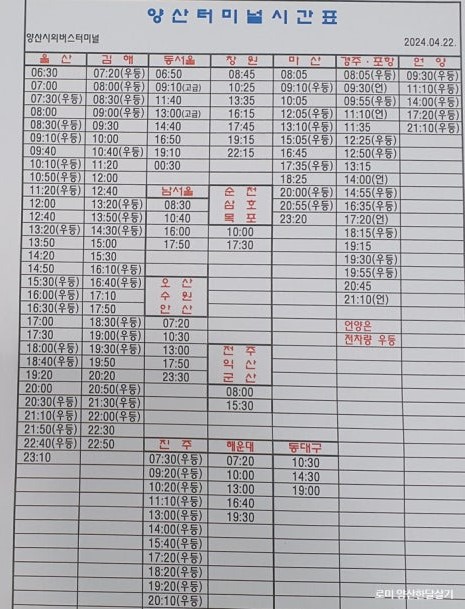 양산터미널시간표
양산시외버스터미널
2024.04.22.
울산
06:30
07:00
07:30(우등)
08:00
08:30(우등)
09:10(우등)
09:40
10:10(우등)
10:50(우등)
11:20(우등)
12:00
12:40
13:20(우등)
13:50
14:20
14:50
15:30(우등)
16:00(우등)
16:30(우등)
17:00
17:30
18:00(우등)
18:40(우등)
19:20
20:00
20:30(우등)
21:10(우등)
21:50(우등)
22:40(우등)
23:10
김해
07:20(우등)
08:00(우등)
08:30(우등)
09:00(우등)
09:30
10:00
10:40(우등)
11:20
12:00
12:40
13:20(우등)
13:50(우등)
14:30(우등)
15:00
15:30
16:10(우등)
16:40(우등)
17:10
17:50
18:30(우등)
19:00(우등)
19:30(우등)
19:50
20:20
20:50(우등)
21:30(우등)
22:00(우등)
22:30
22:50
동서울
06:50
09:10(고급)
11:40
13:00(고급)
14:40
16:50
19:10
00:30
남서울
08:30
10:40
16:00
17:50
오산
수원
안산
07:20
10:30
13:00
17:50
23:30
진주
07:30(우등)
09:20(우등)
10:20(우등)
11:10(우등)
13:00(우등)
14:00(우등)
15:40(우등)
17:20(우등)
18:20(우등)
19:20(우등)
20:10(우등)
창원
08:45
10:25
13:35
16:15
17:45
19:15
22:15
순천
삼호
목포
10:00
17:30
전주
익산
군산
08:00
15:30
해운대
07:20
10:00
13:00
16:40
19:30
마산
08:05
09:10(우등)
10:05
12:05(우등)
13:10(우등)
15:05(우등)
16:45
17:35(우등)
18:25
20:00(우등)
20:55(우등)
23:20
동대구
10:30
14:30
19:00
경주·포항
08:05(우등)
09:30(언)
09:55(우등)
11:10(언)
11:35
12:25(우등)
12:50(우등)
13:15
14:00(언)
14:55(우등)
16:35(우등)
17:20(언)
18:15(우등)
19:15
19:30(우등)
19:55(우등)
20:45
21:10(언)
언양은
전차량 우등
언양
09:30(우등)
11:10(우등)
14:00(우등)
17:20(우등)
21:10(우등)
로미 양산한달살기